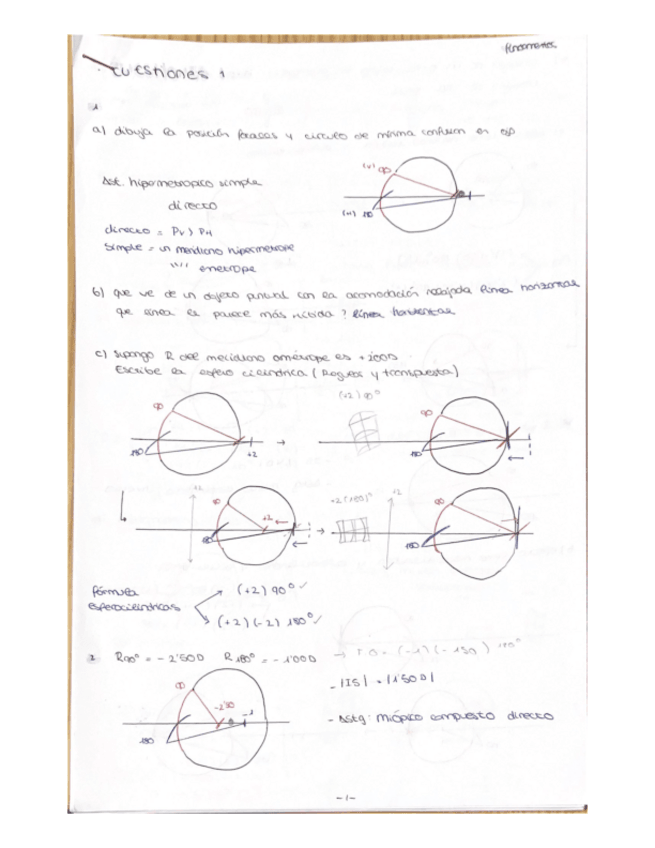 Fundamentos
Cuestiones 1
1
a) dibuja la posición focales y círculo de mínima confusión en ojo
(V) 90
(H) 180
Ast. hipermetropico simple
directo
directo = Pv > PH
Simple = un meridiano hipermetrope
"" emetrope
b) que ve de un objeto puntual con la acomodación relajada línea horizontal
que línea le parece más nítida? línea horizontal
c) Supongo R del meridiano amétrope es +2'00D
Escribe la esfero cilíndrica (Regular y transpuesta)
(+2) 90°
90
180
+2
90
180
+2
90
+2
180
+2 (180)°
+2
90
180
fórmula
esferocilíndricas
(+2) 90°
(+2) (-2) 180°
2. R90° = -2'50D R180° = -1'00D
90
-2'50
-1
180
- |IS| = |1'50D|
- Astg: Miópico compuesto directo
-1-